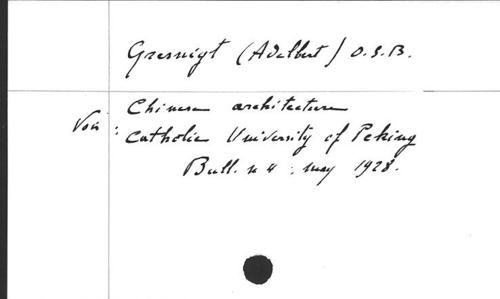 Gresnigt (Adelbert) O.S.B.
Chinese architecture
Voir : Catholic University of Peking
Bull. n 4 : may 1928.